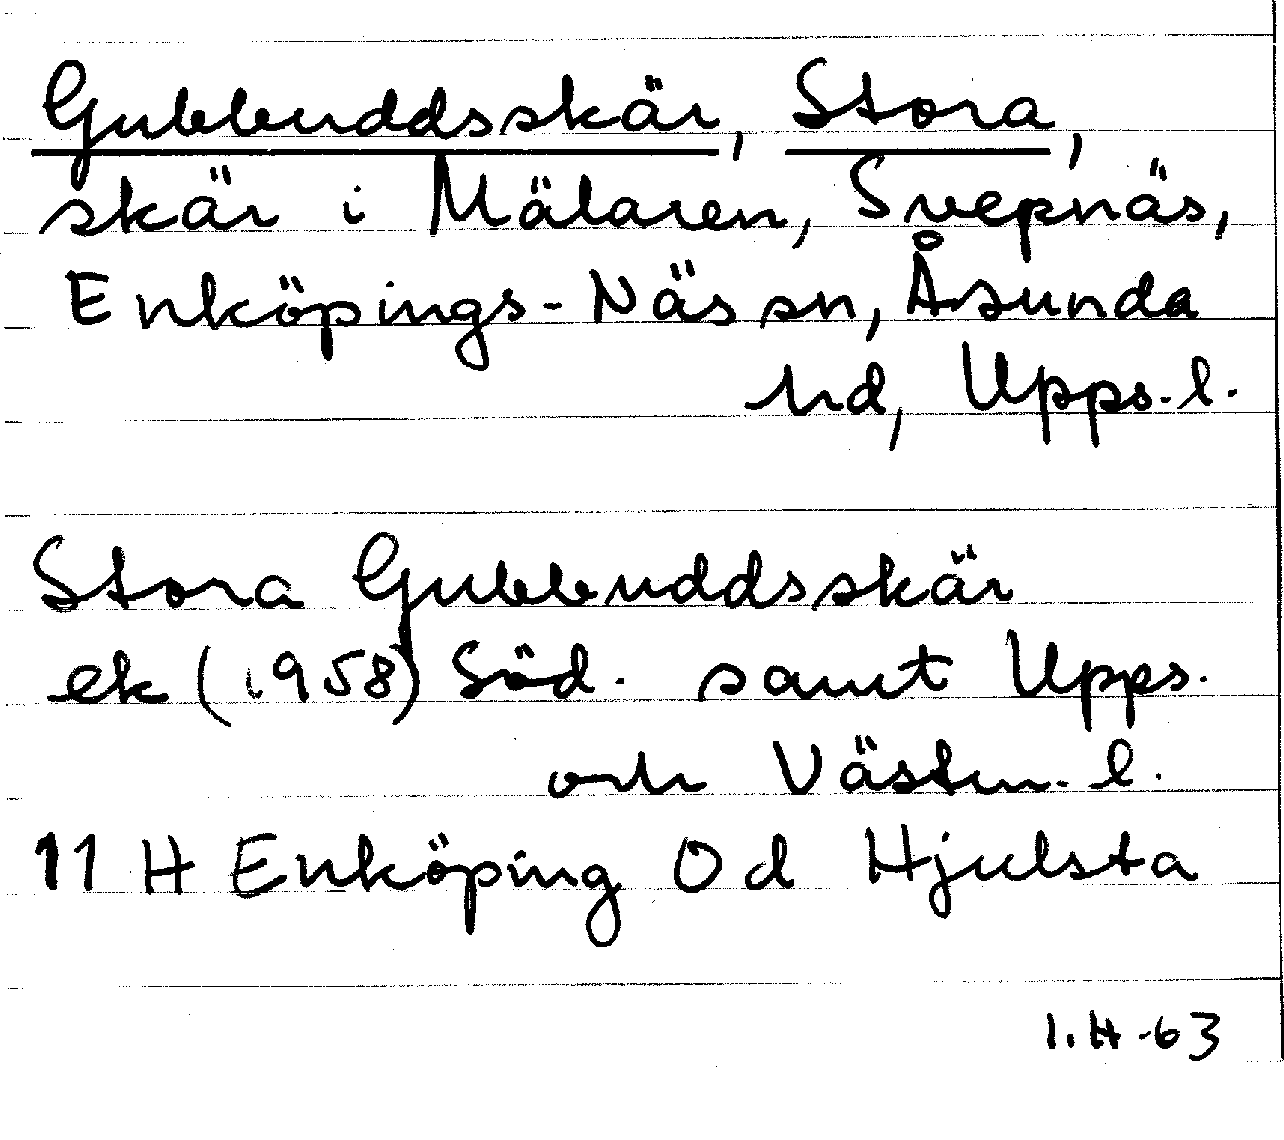 Gubbuddsskär, Stora,
skär i Mälaren, Svepnäs,
Enköpings-Näs sn, Åsunda
hd, Upps. l.
Stora Gubbuddsskär
ek (1958) Söd. samt Upps.
och Västm. l.
11 H Enköping 0d Hjulsta
I.H-63